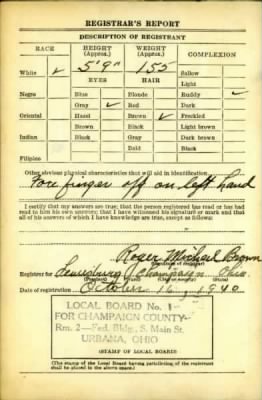 REGISTRAR'S REPORT
DESCRIPTION OF REGISTRANT
RACE HEIGHT (Approx.) WEIGHT (Approx.) COMPLEXION
White ✓ 5' 9" 155 Sallow
EYES HAIR Light
Negro Blue Blonde Ruddy ✓
Gray ✓ Red Dark
Oriental Hazel Brown ✓ Freckled
Brown Black Light brown
Indian Black Gray Dark brown
Bald Black
Filipino
Other obvious physical characteristics that will aid in identification
Fore finger off on left hand
I certify that my answers are true; that the person registered has read or has had read to him his own answers; that I have witnessed his signature or mark and that all of his answers of which I have knowledge are true, except as follows:
Roger Michael Brown
Registrar for Champaign Ohio
Date of registration October 16, 1940
LOCAL BOARD No. 1
FOR CHAMPAIGN COUNTY
Rm. 2—Fed. Bldg., S. Main St.
URBANA, OHIO
(STAMP OF LOCAL BOARD)
(The stamp of the Local Board having jurisdiction of the registrant shall be placed in the above space.)